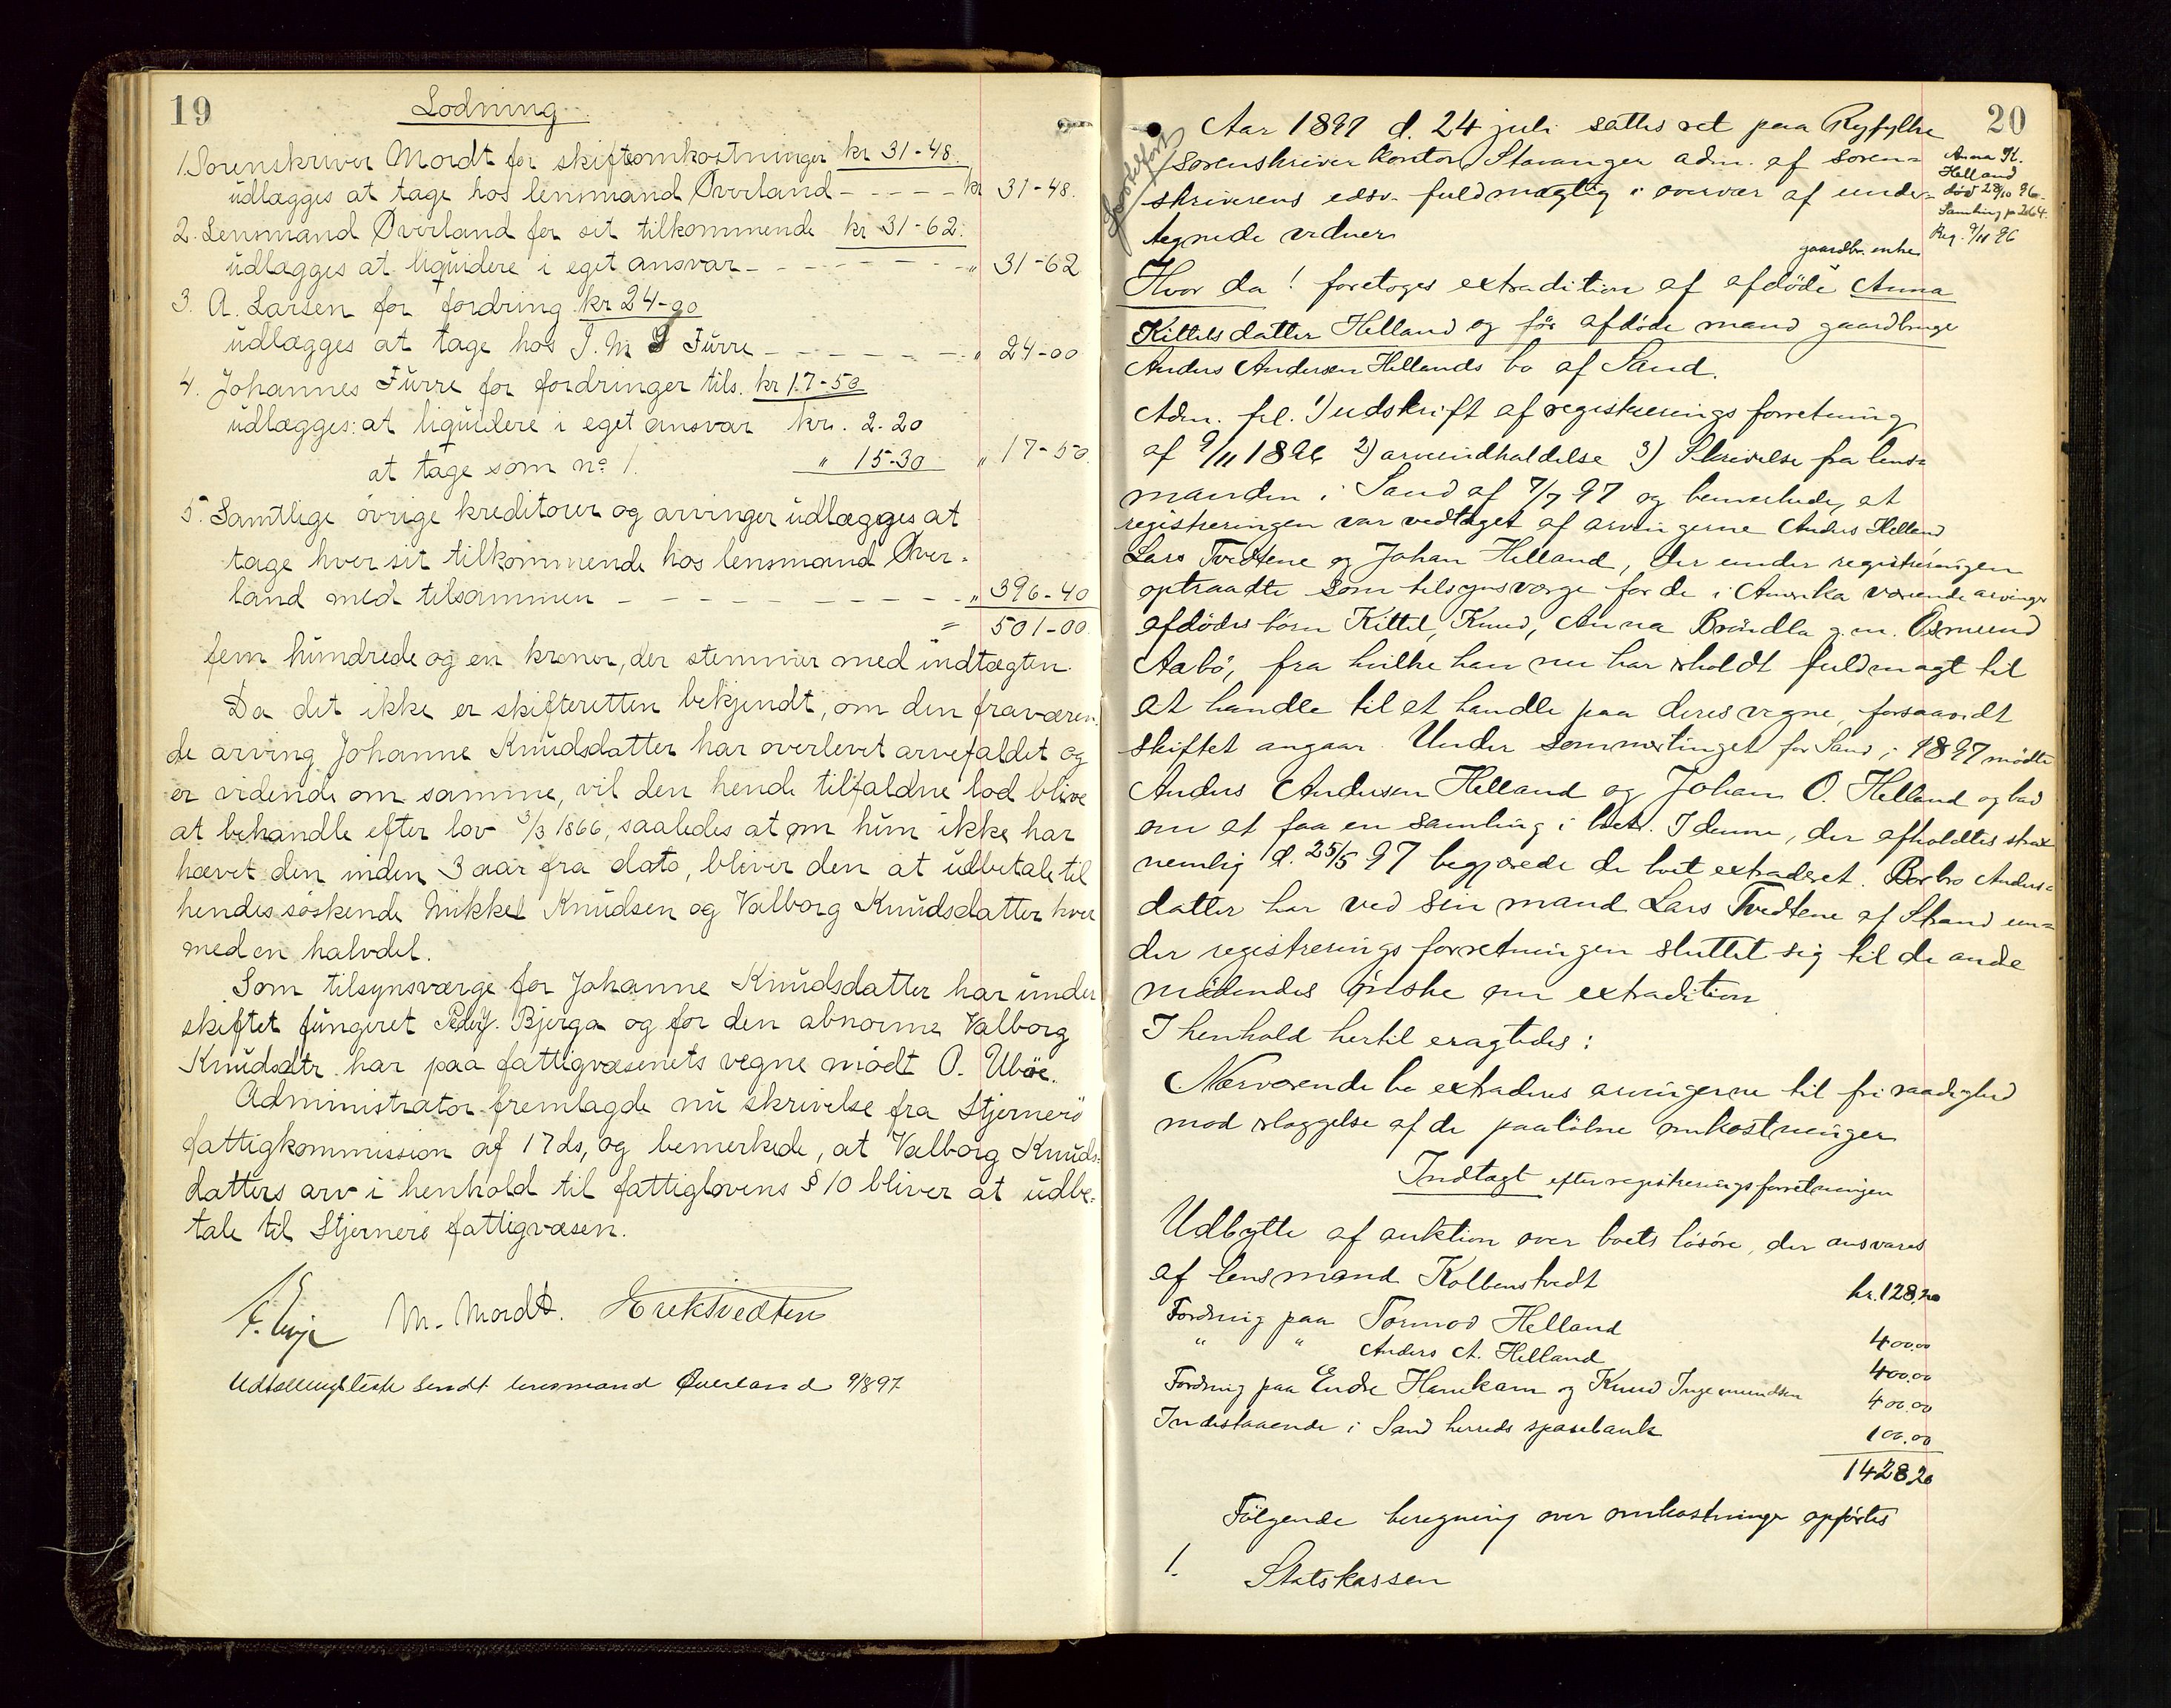 19
Lodning
1. Sorenskriver Mordt for skifteomkostninger kr 31-48.
udlægges at tage hos lensmand Øverland - - - - kr 31-48.
2. Lensmand Øverland for sit tilkommende kr 31-62.
udlægges at liquidere i eget ansvar - - - - - - - " 31-62
3. A. Larsen for fordring kr 24-90
udlægges at tage hos J. M. Furre - - - - - - " 24-00
4. Johannes Furre for fordringer tils. kr 17-50
udlægges: at liquidere i eget ansvar kr. 2.20
at tage som no 1. " 15-30 " 17-50.
5. Samtlige övrige kreditorer og arvinger udlægges at
tage hver sit tilkommende hos lensmand Över-
land med tilsammen - - - - - - - - - " 396-40
= 501-00.
fem hundrede og en kroner, der stemmer med indtægten.
Da det ikke er skifteretten bekjendt, om den fraværen-
de arving Johanne Knudsdatter har overlevet arvefaldet og
er vidende om samme, vil den hende tilfaldne lod blive
at behandle efter lov 3/3 1866, saaledes at om hun ikke har
hævet den inden 3 aar fra dato, bliver den at udbetale til
hendes söskende Mikkel Knudsen og Valborg Knudsdatter hver
med en halvdel.
Som tilsynsværge for Johanne Knudsdatter har under
skiftet fungeret Peder J. Bjerga og for den abnorme Valborg
Knudsdtr. har paa fattigvæsenets vegne mödt O. Uböe.
Administrator fremlagde nu skrivelse fra Stjernerö
fattigkommission af 17 ds, og bemerkede, at Valborg Knuds-
datters arv i henhold til fattiglovens § 10 bliver at udbe-
tale til Stjernerö fattigvæsen.
M. Mordt. Erik Tvedten
Udtællingsliste sendt lensmand Øverland 9/8 97
20
Aar 1897 d. 24 juli sattes ret paa Ryfylke
sorenskriverkontor Stavanger adm. af soren-
skriverens edsv. fuldmægtig i overvær af under-
tegnede vidner
Anna K.
Helland
död 28/10 96.
Samling p 264.
Reg. 9/11 96
gaardbr. enke
Hvor da! foretoges extradition af afdöde Anna
Kittelsdatter Helland og för afdöde mand gaardbruger
Anders Andersen Hellands bo af Sand.
Adm. frl. 1) udskrift af registreringsforretning
af 9/11 1896 2) arveindkaldelse 3) Skrivelse fra lens-
manden i Sand af 7/7 97 og bemerkede, at
registreringen var vedtaget af arvingerne Anders Helland
Lars Tvedtene og Johan Helland, der under registreringen
optraadte som tilsynsværge for de i Amerika værende arvinger
afdödes börn Kittel, Knud, Anna Bröndla g.m. Osmund
Aabö, fra hvilke han nu har erholdt fuldmagt til
at handle til at handle paa deres vegne, forsaavidt
skiftet angaar. Under sommertinget for Sand i 1897 mödte
Anders Andersen Helland og Johan O. Helland og bad
om at faa en samling i boet. I denne, der afholdtes strax
nemlig d. 25/5 97 begjærede de boet extraderet. Barbro Anders-
datter har ved sin mand Lars Tvedtene af Strand un-
der registreringsforretningen sluttet sig til de ande
mödendes önske om extradition
I henhold hertil eragtedes:
Nærværende bo extraderes arvingerne til fri raadighed
mod erlæggelse af de paalöbne omkostninger
Indtægt efter registreringsforretningen
Udbytte af auktion over boets lösöre, der ansvares
af lensmand Kolbenstvedt kr. 128,20
Fordring paa Tormod Helland 400.00
" " Anders A. Helland 400.00
Fordring paa Endre Hamkam og Knud Ingemundsen 400.00
Indestaaende i Sand herreds sparebank 100.00
1428,20
Fölgende beregning over omkostninger opförtes
1. Statskassen